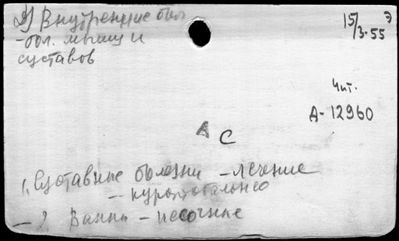 2) Внутренние бол
- бол. мышц и
суставов
15/3-55 э
Чит.
А-12960
А С
1. Суставные болезни - лечение
- курортобальнео
- 2 Ванны - песочные